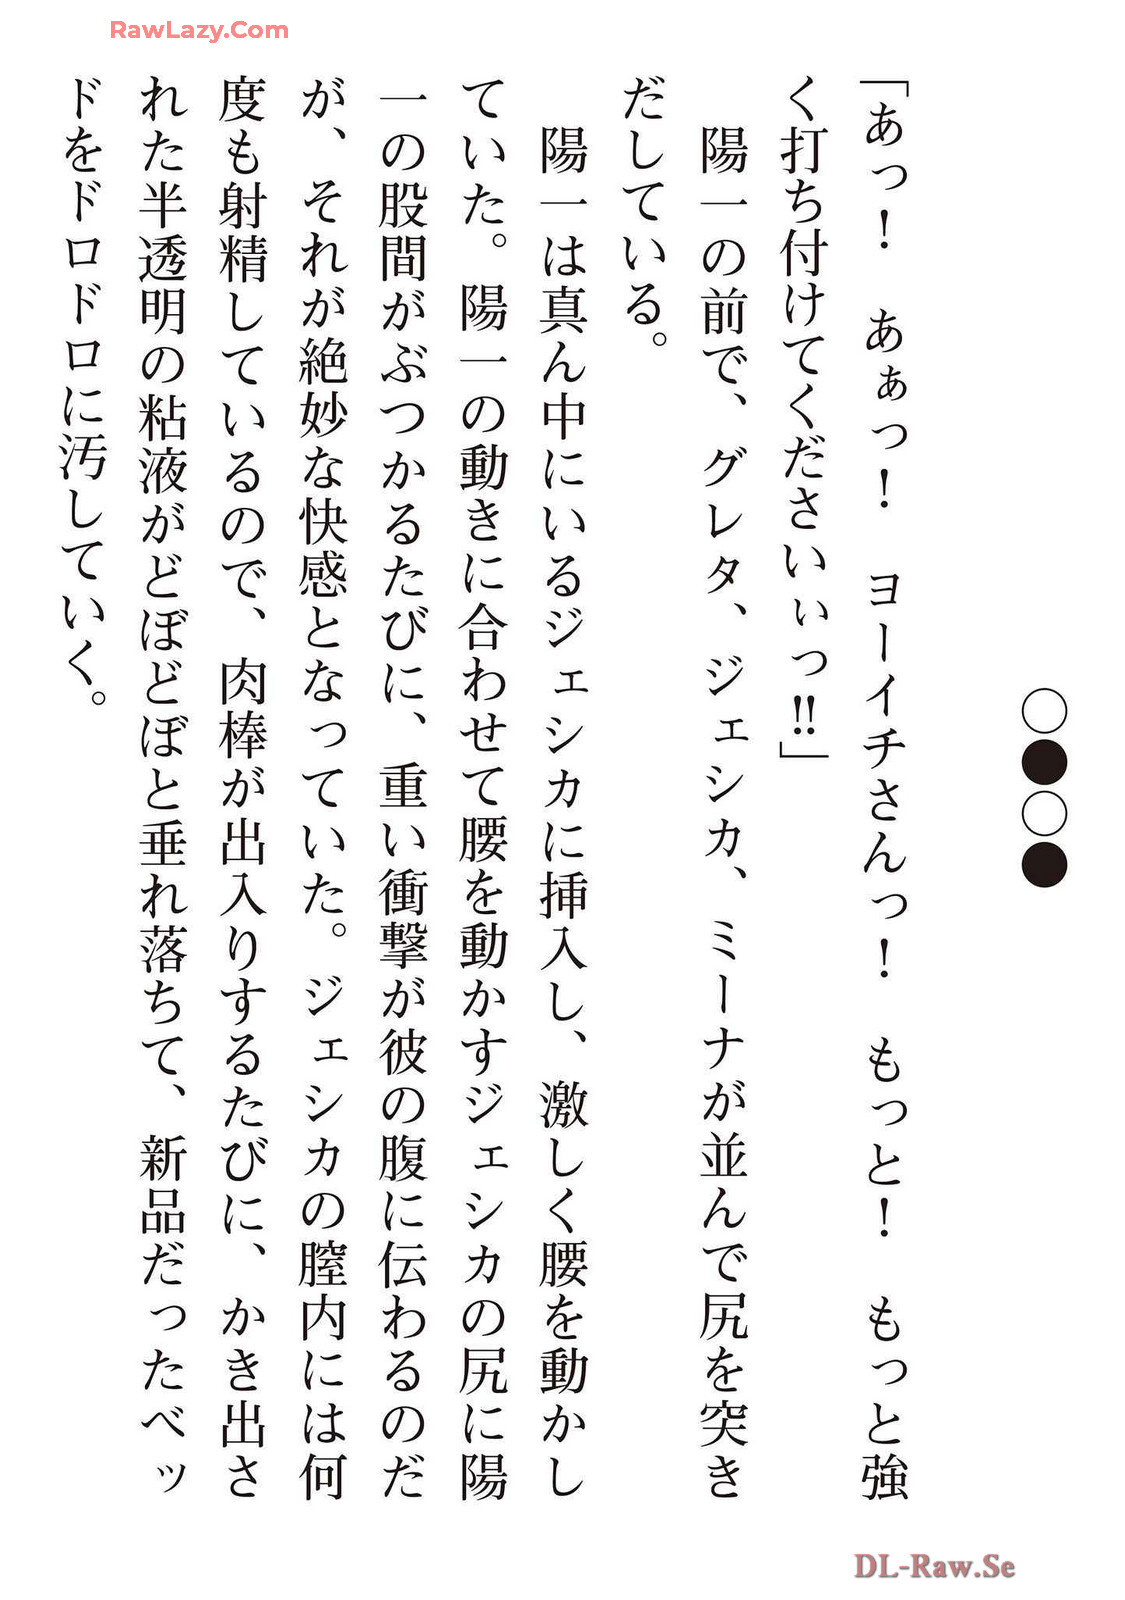 RawLazy.Com
○●○●
「あっ！　あぁっ！　ヨーイチさんっ！　もっと！　もっと強
く打ち付けてくださいぃっ‼」
　陽一の前で、グレタ、ジェシカ、ミーナが並んで尻を突き
だしている。
　陽一は真ん中にいるジェシカに挿入し、激しく腰を動かし
ていた。陽一の動きに合わせて腰を動かすジェシカの尻に陽
一の股間がぶつかるたびに、重い衝撃が彼の腹に伝わるのだ
が、それが絶妙な快感となっていた。ジェシカの膣内には何
度も射精しているので、肉棒が出入りするたびに、かき出さ
れた半透明の粘液がどぼどぼと垂れ落ちて、新品だったベッ
ドをドロドロに汚していく。
DL-Raw.Se